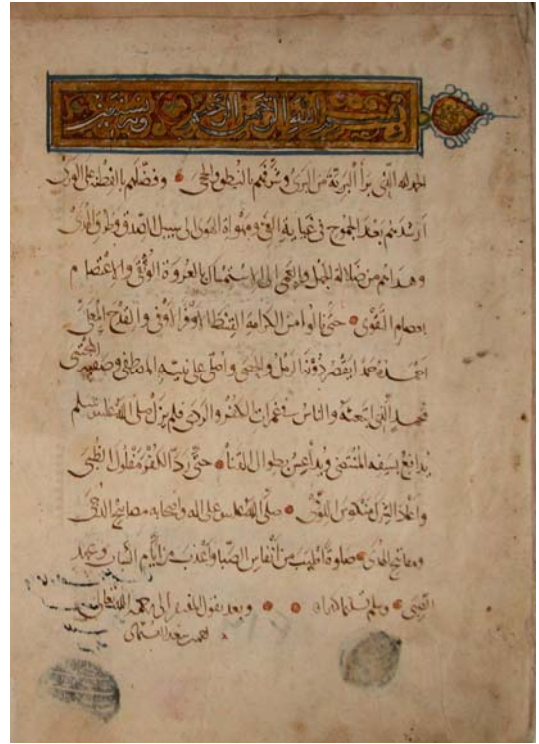 بسم الله الرحمن الرحيم وبه نستعين
الحمد لله الذي برأ البرية من البرى وشرفهم بالنطق والحجى وفضلهم بالفطنة على الورى
ارشدهم بعد الجموح في غيابة الغي ومهواة الهوى الى سبيل الصدق وطرق الهدى
وهداهم من ضلالة الجهل والعمى الى الاستمساك بالعروة الوثقى والاعتصام
بعصام التقوى حتى نالوا من الكرامة القسط الاوفر الاوفى والقدح المعلى
احمده حمدا يقصر دونه الرمل والحصى واصلي على نبيه المصطفى وصفيه المجتبى
محمد الذي ابتعثه والناس في غمرات الكفر والردى فلم يزل صلى الله عليه وسلم
يدافع بسيفه المنتضى ويداعس بطوال القنا حتى ردّ الكفر مفلول الظبى
الشرك صلى الله عليه وعلى اله واصحابه مصابيح الدجى
ومفاتيح الهدى صلوة اطيب من انفاس الصبا واعذب من ايام الشباب وعهد
الصبى وسلم تسليما وبعد يقول المفتقر الى رحمة الله تعالى